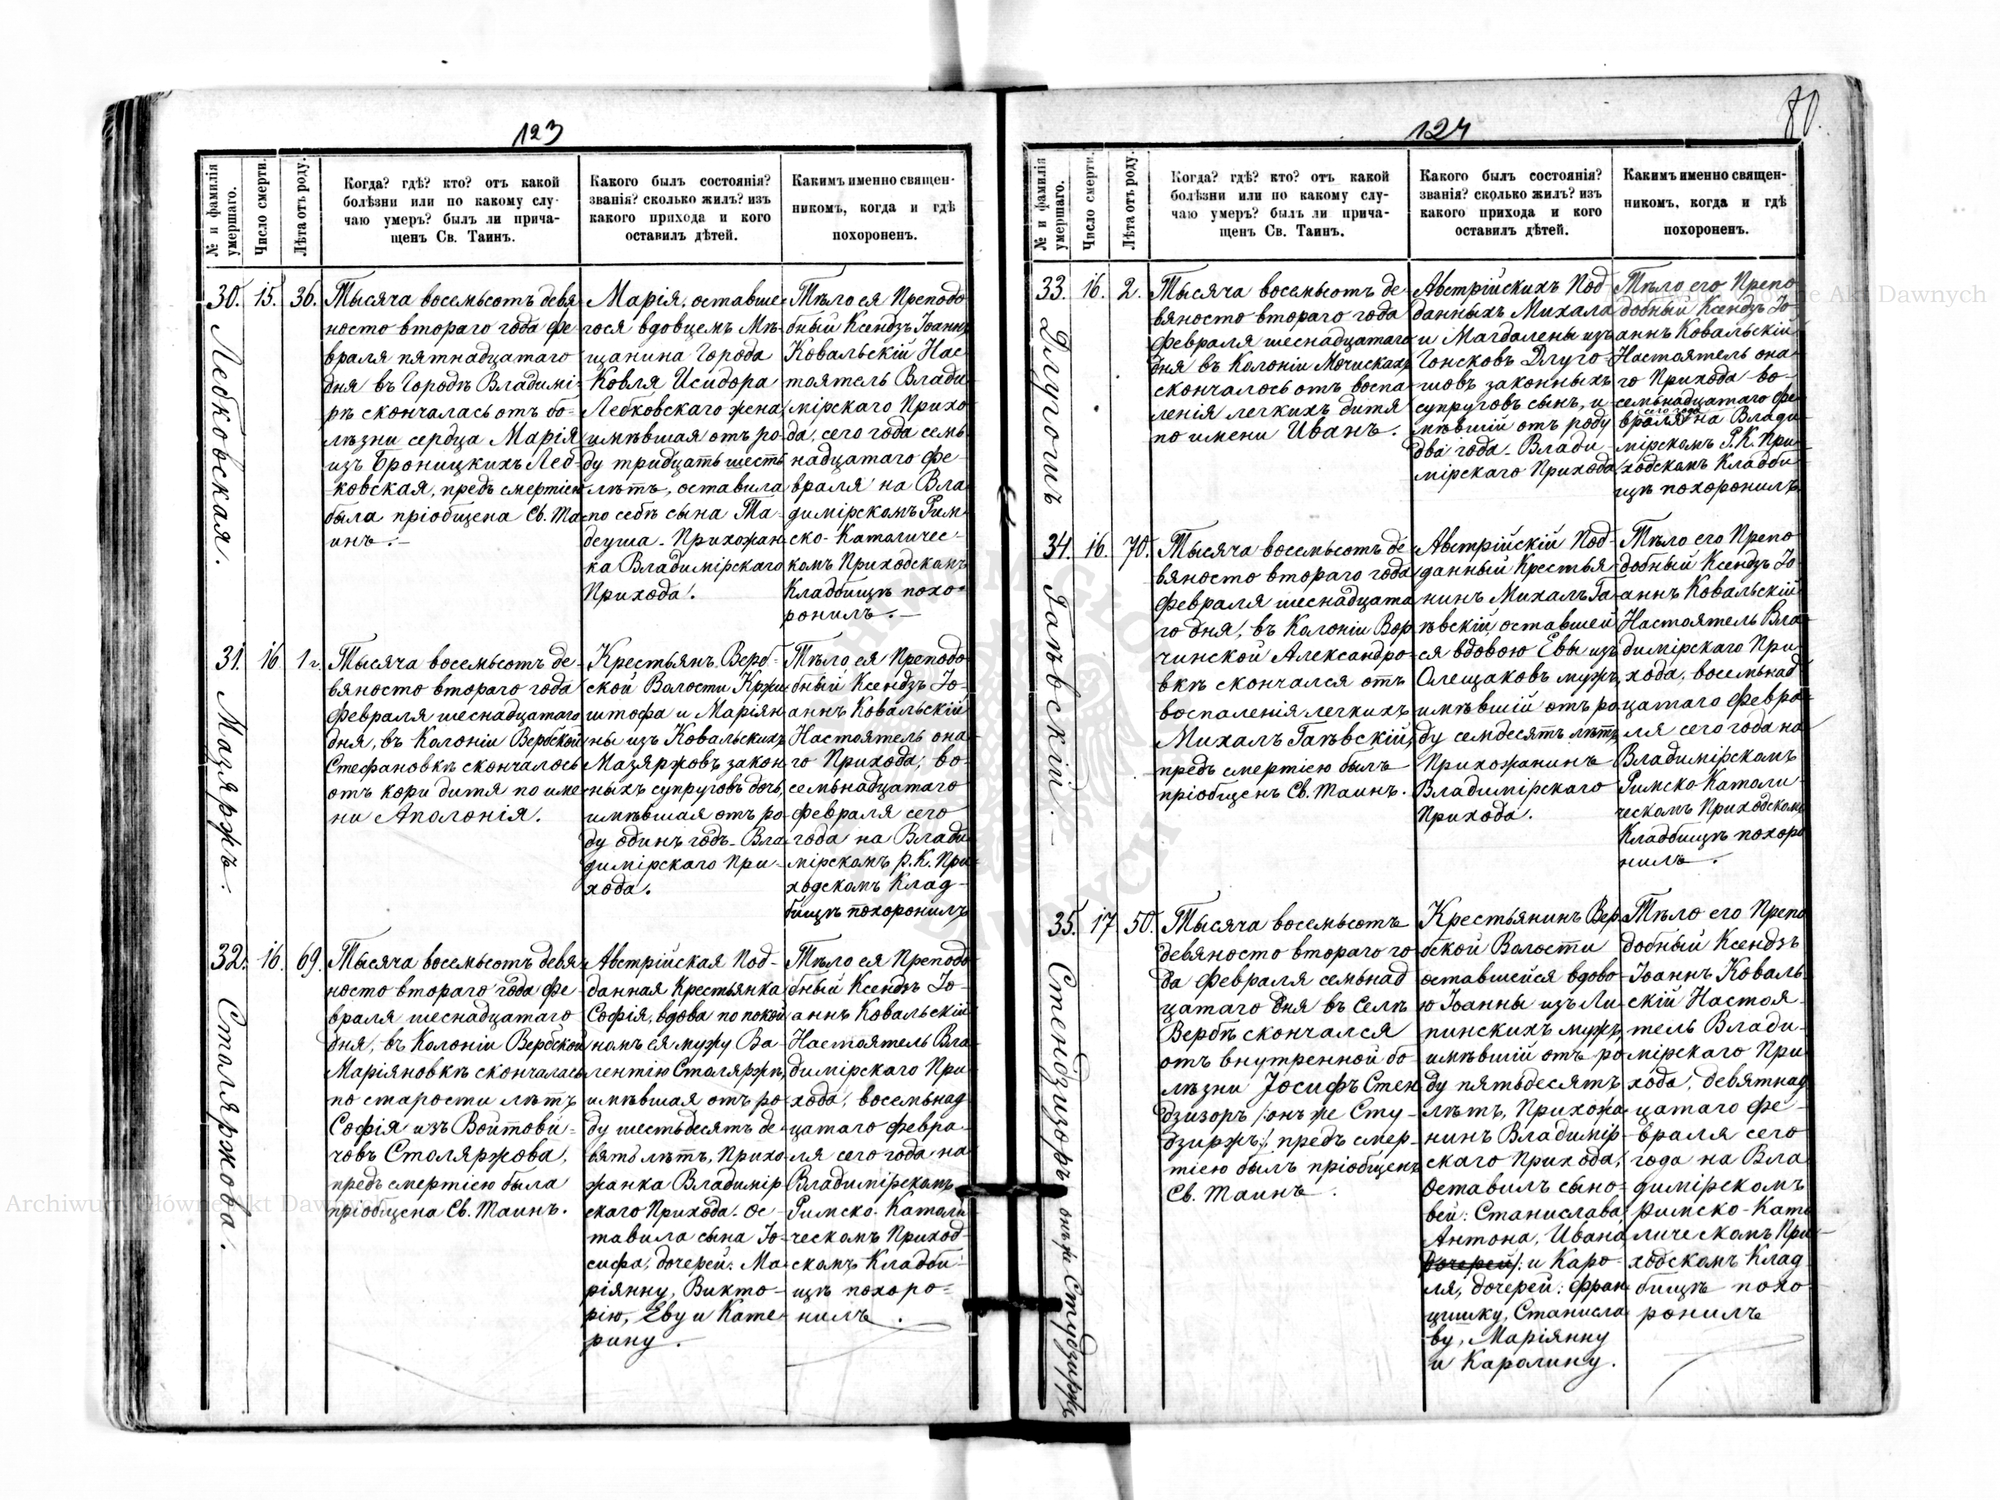 123
№ и фамилія умершаго.
Число смерти.
Лѣта отъ роду.
Когда? гдѣ? кто? отъ какой
болѣзни или по какому слу-
чаю умеръ? былъ ли прича-
щенъ Св. Таинъ.
Какого былъ состоянія?
званія? сколько жилъ? изъ
какого прихода и кого
оставилъ дѣтей.
Какимъ именно священ-
никомъ, когда и гдѣ
похороненъ.
30. 15. 36.
Лебковская.
Тысяча восемьсотъ девя
носто втораго года фе-
враля пятнадцатаго
дня въ Городѣ Владимі-
рѣ скончалась отъ бо-
лѣзни сердца Марія
изъ Броницкихъ Леб-
ковская, предъ смертію
была пріобщена Св. Та
инъ.-
Марія, оставше
гося вдовцемъ Мѣ-
щанина Города
Ковля Исидора
Лебковскаго жена,
имѣвшая отъ ро-
ду тридцать шесть
лѣтъ, оставила
по себѣ сына Та-
деуша. Прихожан
ка Владимірскаго
Прихода.
Тѣло ея Преподо
бный Ксендзъ Іоаннъ
Ковальскій Нас-
тоятель Влади
мірскаго Прихо-
да, сего года семь
надцатаго фе-
враля на Вла-
димірскомъ Рим-
ско-Католичес-
комъ Приходскомъ
Кладбищѣ похо-
ронилъ.-
31. 16. 1 г.
Мазяржъ.
Тысяча восемьсотъ де-
вяносто втораго года
февраля шеснадцатаго
дня, въ Колоніи Вербской
Стефановкѣ скончалось
отъ кори дитя по име
ни Аполонія.
Крестьянъ Верб-
ской Волости Кржи
штофа и Маріян-
ны изъ Ковальскихъ
Мазяржовъ закон
ныхъ супруговъ дочь,
имѣвшая отъ ро-
ду одинъ годъ. Вла
димірскаго При-
хода.
Тѣло ея Преподо
бный Ксендзъ Іо-
аннъ Ковальскій
Настоятель она-
го Прихода, во-
семьнадцатаго
февраля сего
года на Влади
мірскомъ Р. К. При
ходскомъ Клад-
бищѣ похоронилъ
32. 16. 69.
Столяржова.
Тысяча восемьсотъ девя
носто втораго года фе
враля шеснадцатаго
дня, въ Колоніи Вербской
Маріяновкѣ скончалась
по старости лѣтъ
Софія изъ Войтови-
човъ Столяржова,
предъ смертію была
пріобщена Св. Таинъ.
Австрійская Под-
данная Крестьянка
Софія, вдова по покой
номъ ея мужу Ва-
лентію Столяржѣ,
имѣвшая отъ ро-
ду шестьдесятъ де-
вять лѣтъ, Прихо-
жанка Владимір
скаго Прихода. Ос-
тавила сына Іо-
сифа, дочерей: Ма-
ріянну, Викто-
рію, Еву и Кате-
рину.
Тѣло ея Преподо
бный Ксендзъ Іо-
аннъ Ковальскій
Настоятель Вла-
димірскаго При
хода, восемьнад
цатаго февра-
ля сего года на
Владимірскомъ
Римско-Католи
ческомъ Приход-
скомъ Кладби-
щѣ похоро-
нилъ.
124
80.
№ и фамилія умершаго.
Число смерти.
Лѣта отъ роду.
Когда? гдѣ? кто? отъ какой
болѣзни или по какому слу-
чаю умеръ? былъ ли прича-
щенъ Св. Таинъ.
Какого былъ состоянія?
званія? сколько жилъ? изъ
какого прихода и кого
оставилъ дѣтей.
Какимъ именно священ-
никомъ, когда и гдѣ
похороненъ.
33. 16. 2.
Длугошъ
Тысяча восемьсотъ де
вяносто втораго года
февраля шеснадцатаго
дня въ Колоніи
скончалось отъ воспа
ленія легкихъ дитя
по имени Иванъ.
Австрійскихъ Под
данныхъ Михала
и Магдалены изъ
Гонсковъ Длуго-
шовъ законныхъ
супруговъ сынъ, и
мѣвшій отъ роду
два года. Влади
мірскаго Прихода
Тѣло его Препо
добный Ксендзъ Іо-
аннъ Ковальскій
Настоятель она-
го Прихода во-
семьнадцатаго фе
сего года
враля на Влади
мірскомъ Р. К. При
ходскомъ Кладби
щѣ похоронилъ
34. 16. 70.
Гаѣвскій.-
Тысяча восемьсотъ де
вяносто втораго года
февраля шеснадцата
го дня, въ Колоніи Вор
чинской Александро-
вкѣ скончался отъ
воспаленія легкихъ
Михалъ Гаѣвскій,
предъ смертію былъ
пріобщенъ Св. Таинъ.
Австрійскій Под-
данный Крестья
нинъ Михалъ Га-
ѣвскій, оставшей
ся вдовою Евы изъ
Олещаковъ мужъ,
имѣвшій отъ ро
ду семдесятъ лѣтъ
Прихожанинъ
Владимірскаго
Прихода.
Тѣло его Препо
добный Ксендзъ Іо
аннъ Ковальскій
Настоятель Вла-
димірскаго При
хода, восемьнад
цатаго февра-
ля сего года на
Владимірскомъ
Римско-Католи
ческомъ Приходскомъ
Кладбищѣ похоро
нилъ.
35. 17. 50.
Стендзизоръ онъ же Студзиржъ
Тысяча восемьсотъ
девяносто втораго го
да февраля семьнад
цатаго дня въ Селѣ
Вербѣ скончался
отъ внутренной бо
лѣзни Іосифъ Стен
дзизоръ /онъ же Сту-
дзиржъ/ предъ смер-
тію былъ пріобщенъ
Св. Таинъ.
Крестьянинъ Вер
бской Волости
оставшейся вдово
ю Іоанны изъ Ли
пинскихъ мужъ,
имѣвшій отъ ро
ду пятьдесятъ
лѣтъ, Прихожа
нинъ Владимір-
скаго Прихода,
Оставилъ сыно-
вей: Станислава,
Антона, Ивана,
дочерей: и Каро-
ля, дочерей: Фран
цишку, Станисла
ву, Маріянну
и Каролину.
Тѣло его Препо
добный Ксендзъ
Іоаннъ Коваль-
скій Настоя-
тель Влади-
мірскаго При
хода, девятнад
цатаго фе-
враля сего
года на Вла
димірскомъ
Римско-Като
лическомъ При-
ходскомъ Клад-
бищѣ похо
ронилъ
Archiwum Główne Akt Dawnych
Archiwum Główne Akt Dawnych